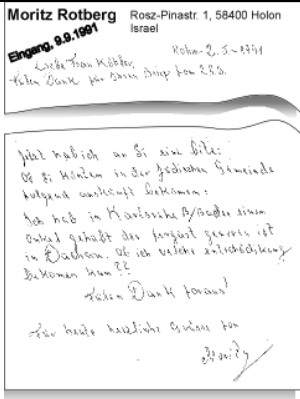 Moritz Rotberg Rosz-Pinastr. 1, 58400 Holon
Israel
Eingang, 9.9.1991
Holon - 2.9.-1991
Liebe Frau Köbler,
Filen Dank für Ihren Brief fom 28.8.
Jetzt hab ich an Si eine Bite:
Ob Si könten in der Jedischen Gemeinde
folgend auskünft bekomen:
Ich hab in Karlsruhe B/Baden einen
onkel gehabt der fergast gewesen ist
in Dachau. Ob ich welche entschedikung
bekomen kan??
Filen Dank foraus!
Für heute herzliche Grüsse fon
Moritz